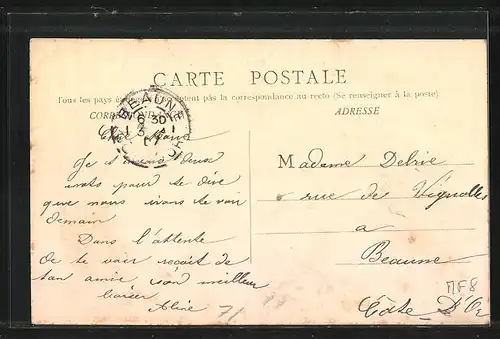 CARTE POSTALE
Tous les pays étrangers n'acceptent pas la correspondance au recto (Se renseigner à la poste).
CORRESPONDANCE
ADRESSE
BEAUNE
6 30
07
Chère Marie
Je t'écris deux
mots pour te dire
que nous irons te voir
demain
Dans l'attente
de te voir reçoit de
ton amie son meilleur
baiser
Aline
Madame Debrie
rue de Vignolles
a
Beaune
Côte D'Or
MF8